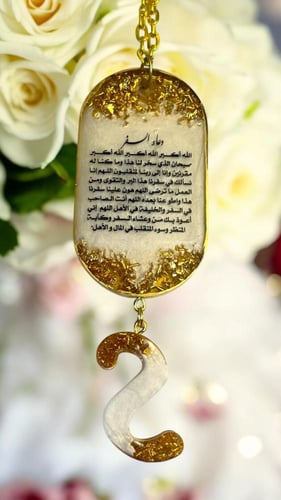 دعاء السفر
الله أكبر الله أكبر الله أكبر
سبحان الذي سخر لنا هذا وما كنا له
مقرنين وإنا إلى ربنا لمنقلبون اللهم إنا
نسألك في سفرنا هذا البر والتقوى ومن
العمل ما ترضى اللهم هون علينا سفرنا
هذا واطو عنا بعده اللهم أنت الصاحب
في السفر والخليفة في الأهل اللهم إني
أعوذ بك من وعثاء السفر وكآبة
المنظر وسوء المنقلب في المال و الأهل.
S